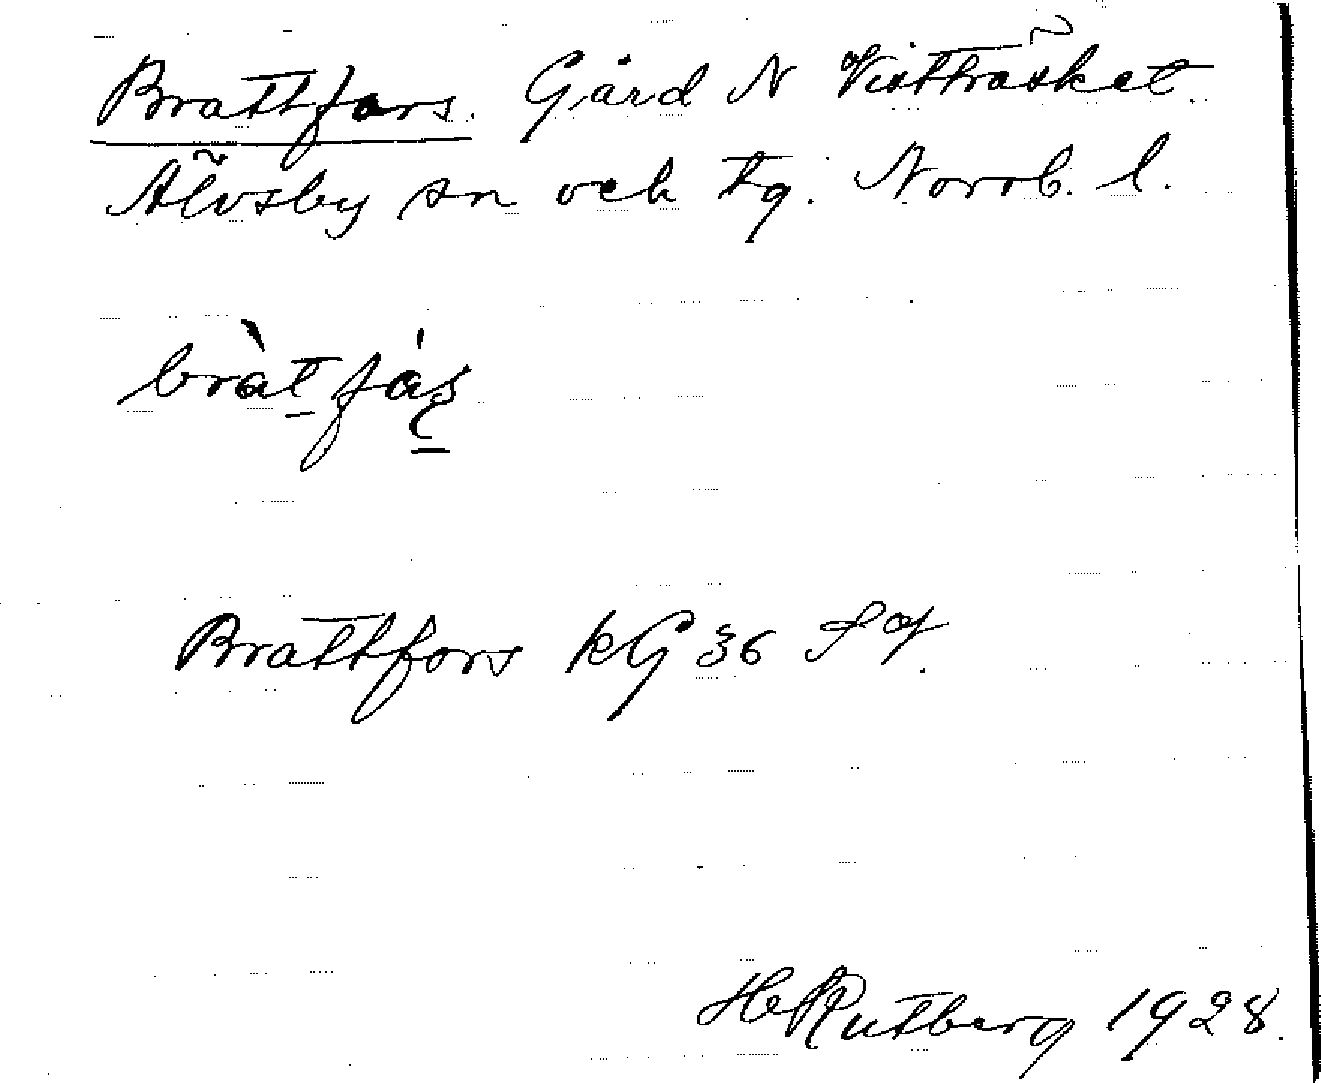 Brattfors. Gård N Vistträsket.
Älvsby sn och tg. Norrb. l.
bràt̠ fáş̠
Brattfors kG 36 Sof.
H Rutberg 1928.